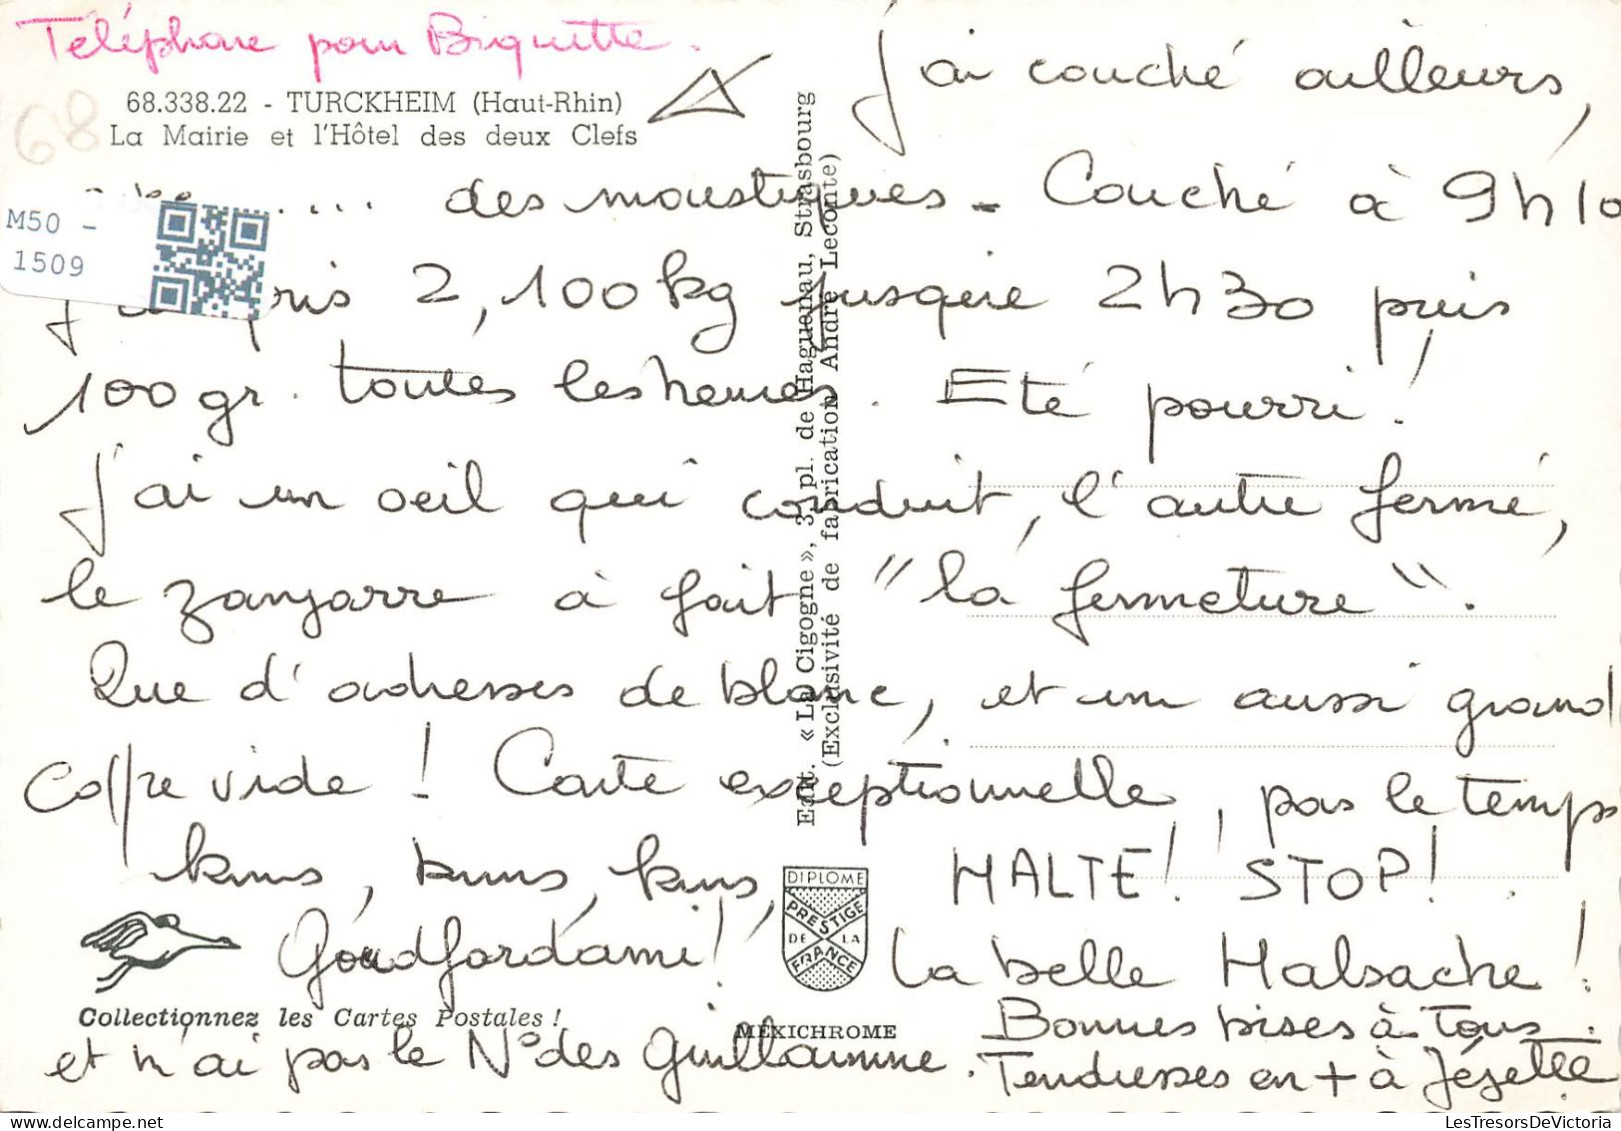 Téléphone pour Biquette.
68.338.22 - TURCKHEIM (Haut-Rhin)
La Mairie et l'Hôtel des deux Clefs
68
M50 -
1509
J'ai couché ailleurs,
.... des moustiques - Couché à 9h10
pris 2,100kg jusque 2h30 puis
100gr. toutes les heures. Eté pourri!
J'ai un oeil qui conduit, l'autre fermé,
le zanjarre à fait "la fermeture".
Que d'adresses de blanc, et un aussi grand
coffre vide! Carte exceptionnelle, pas le temps
HALTE! STOP!
La belle Halsache!
Bonnes bises à tous.
et n'ai pas le N° des Guillaumme. Tendresses en + à Jézette
Edit. « La Cigogne », 3, pl. de Haguenau, Strasbourg
(Exclusivité de fabrication André Lecomte)
DIPLOME
PRESTIGE
DE LA
FRANCE
Collectionnez les Cartes Postales !
MEXICHROME
LesTresorsDeVictoria.com